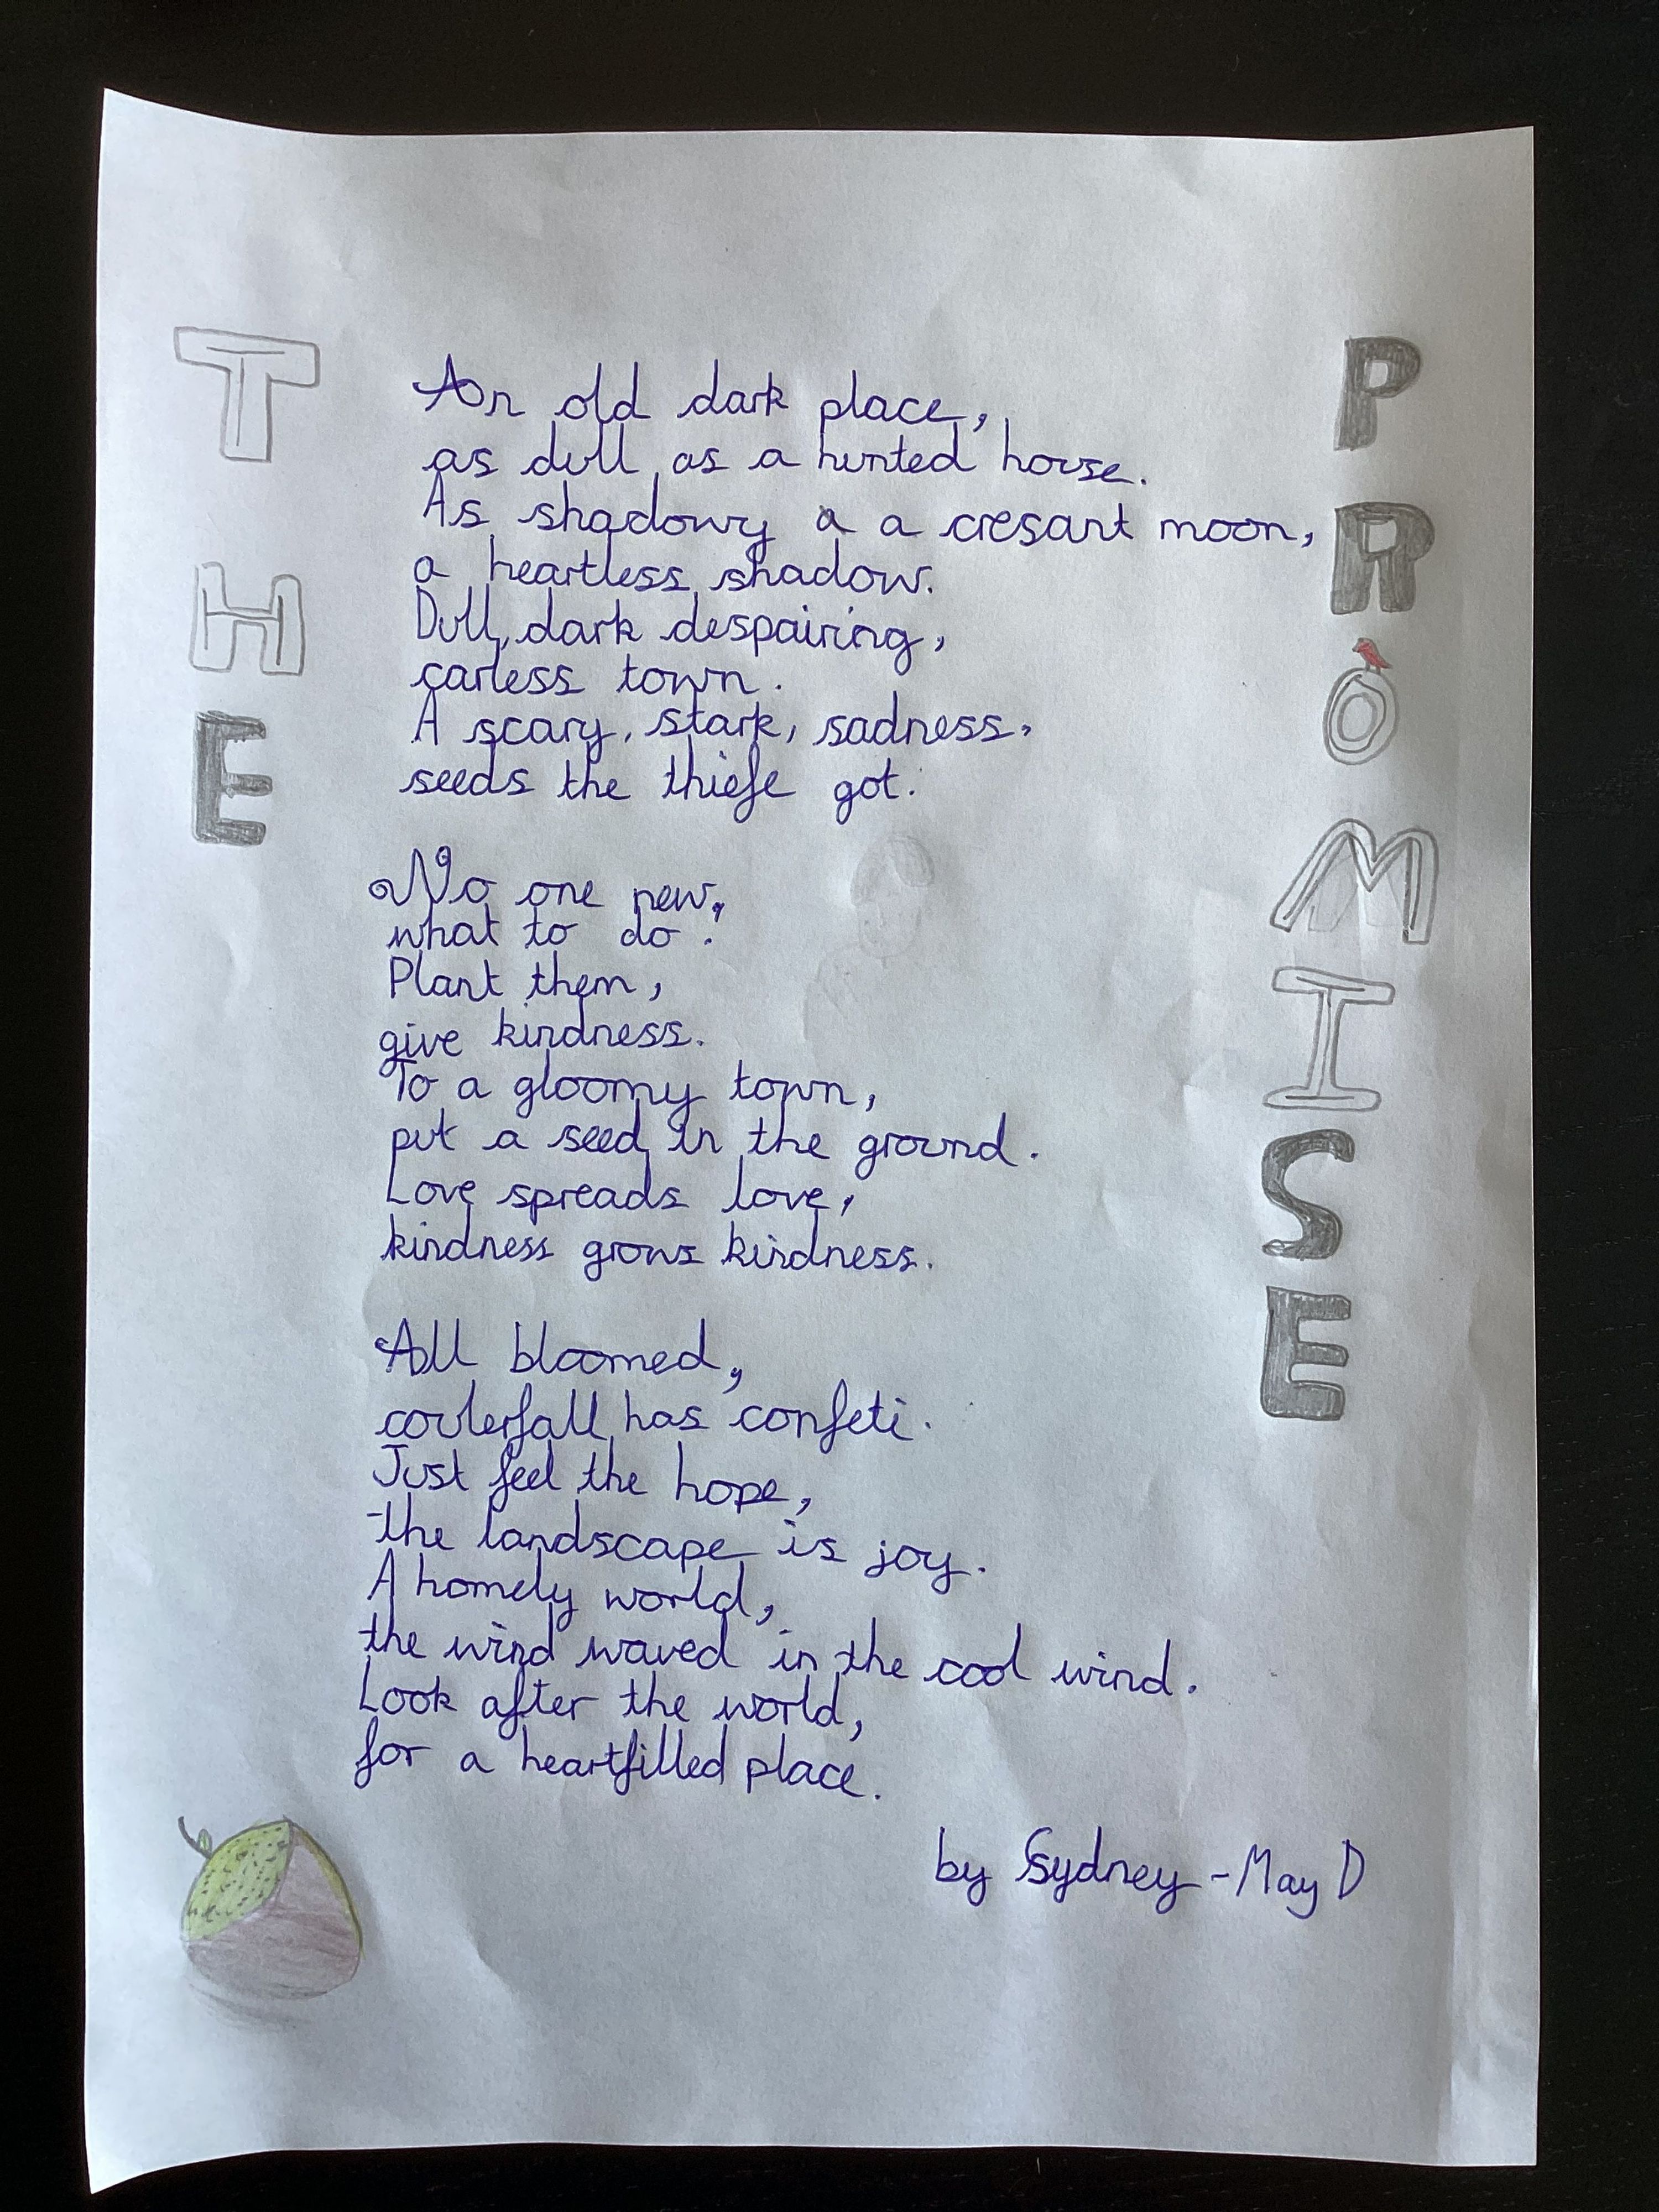 THE PROMISE
An old dark place,
as dull as a hunted house.
As shadowy a a cresant moon,
a heartless shadow.
Dull, dark despairing,
carless town.
A scary, stark, sadness,
seeds the thiefe got.
No one new,
what to do!
Plant them,
give kindness.
To a gloomy town,
put a seed in the ground.
Love spreads love,
kindness grows kindness.
All bloomed,
coulerfall has confeti.
Just feel the hope,
the landscape is joy.
A homely world,
the wind waved in the cool wind.
Look after the world,
for a heartfilled place.
by Sydney-May D